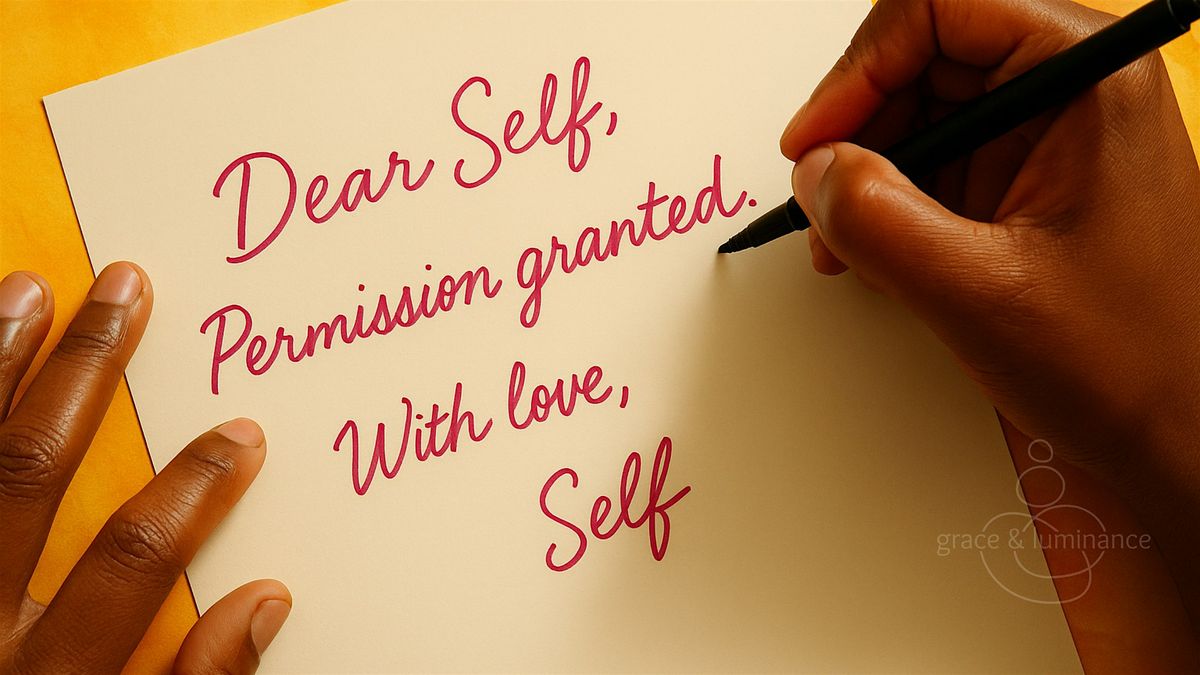 Dear Self,
Permission granted.
With love,
Self
grace & luminance